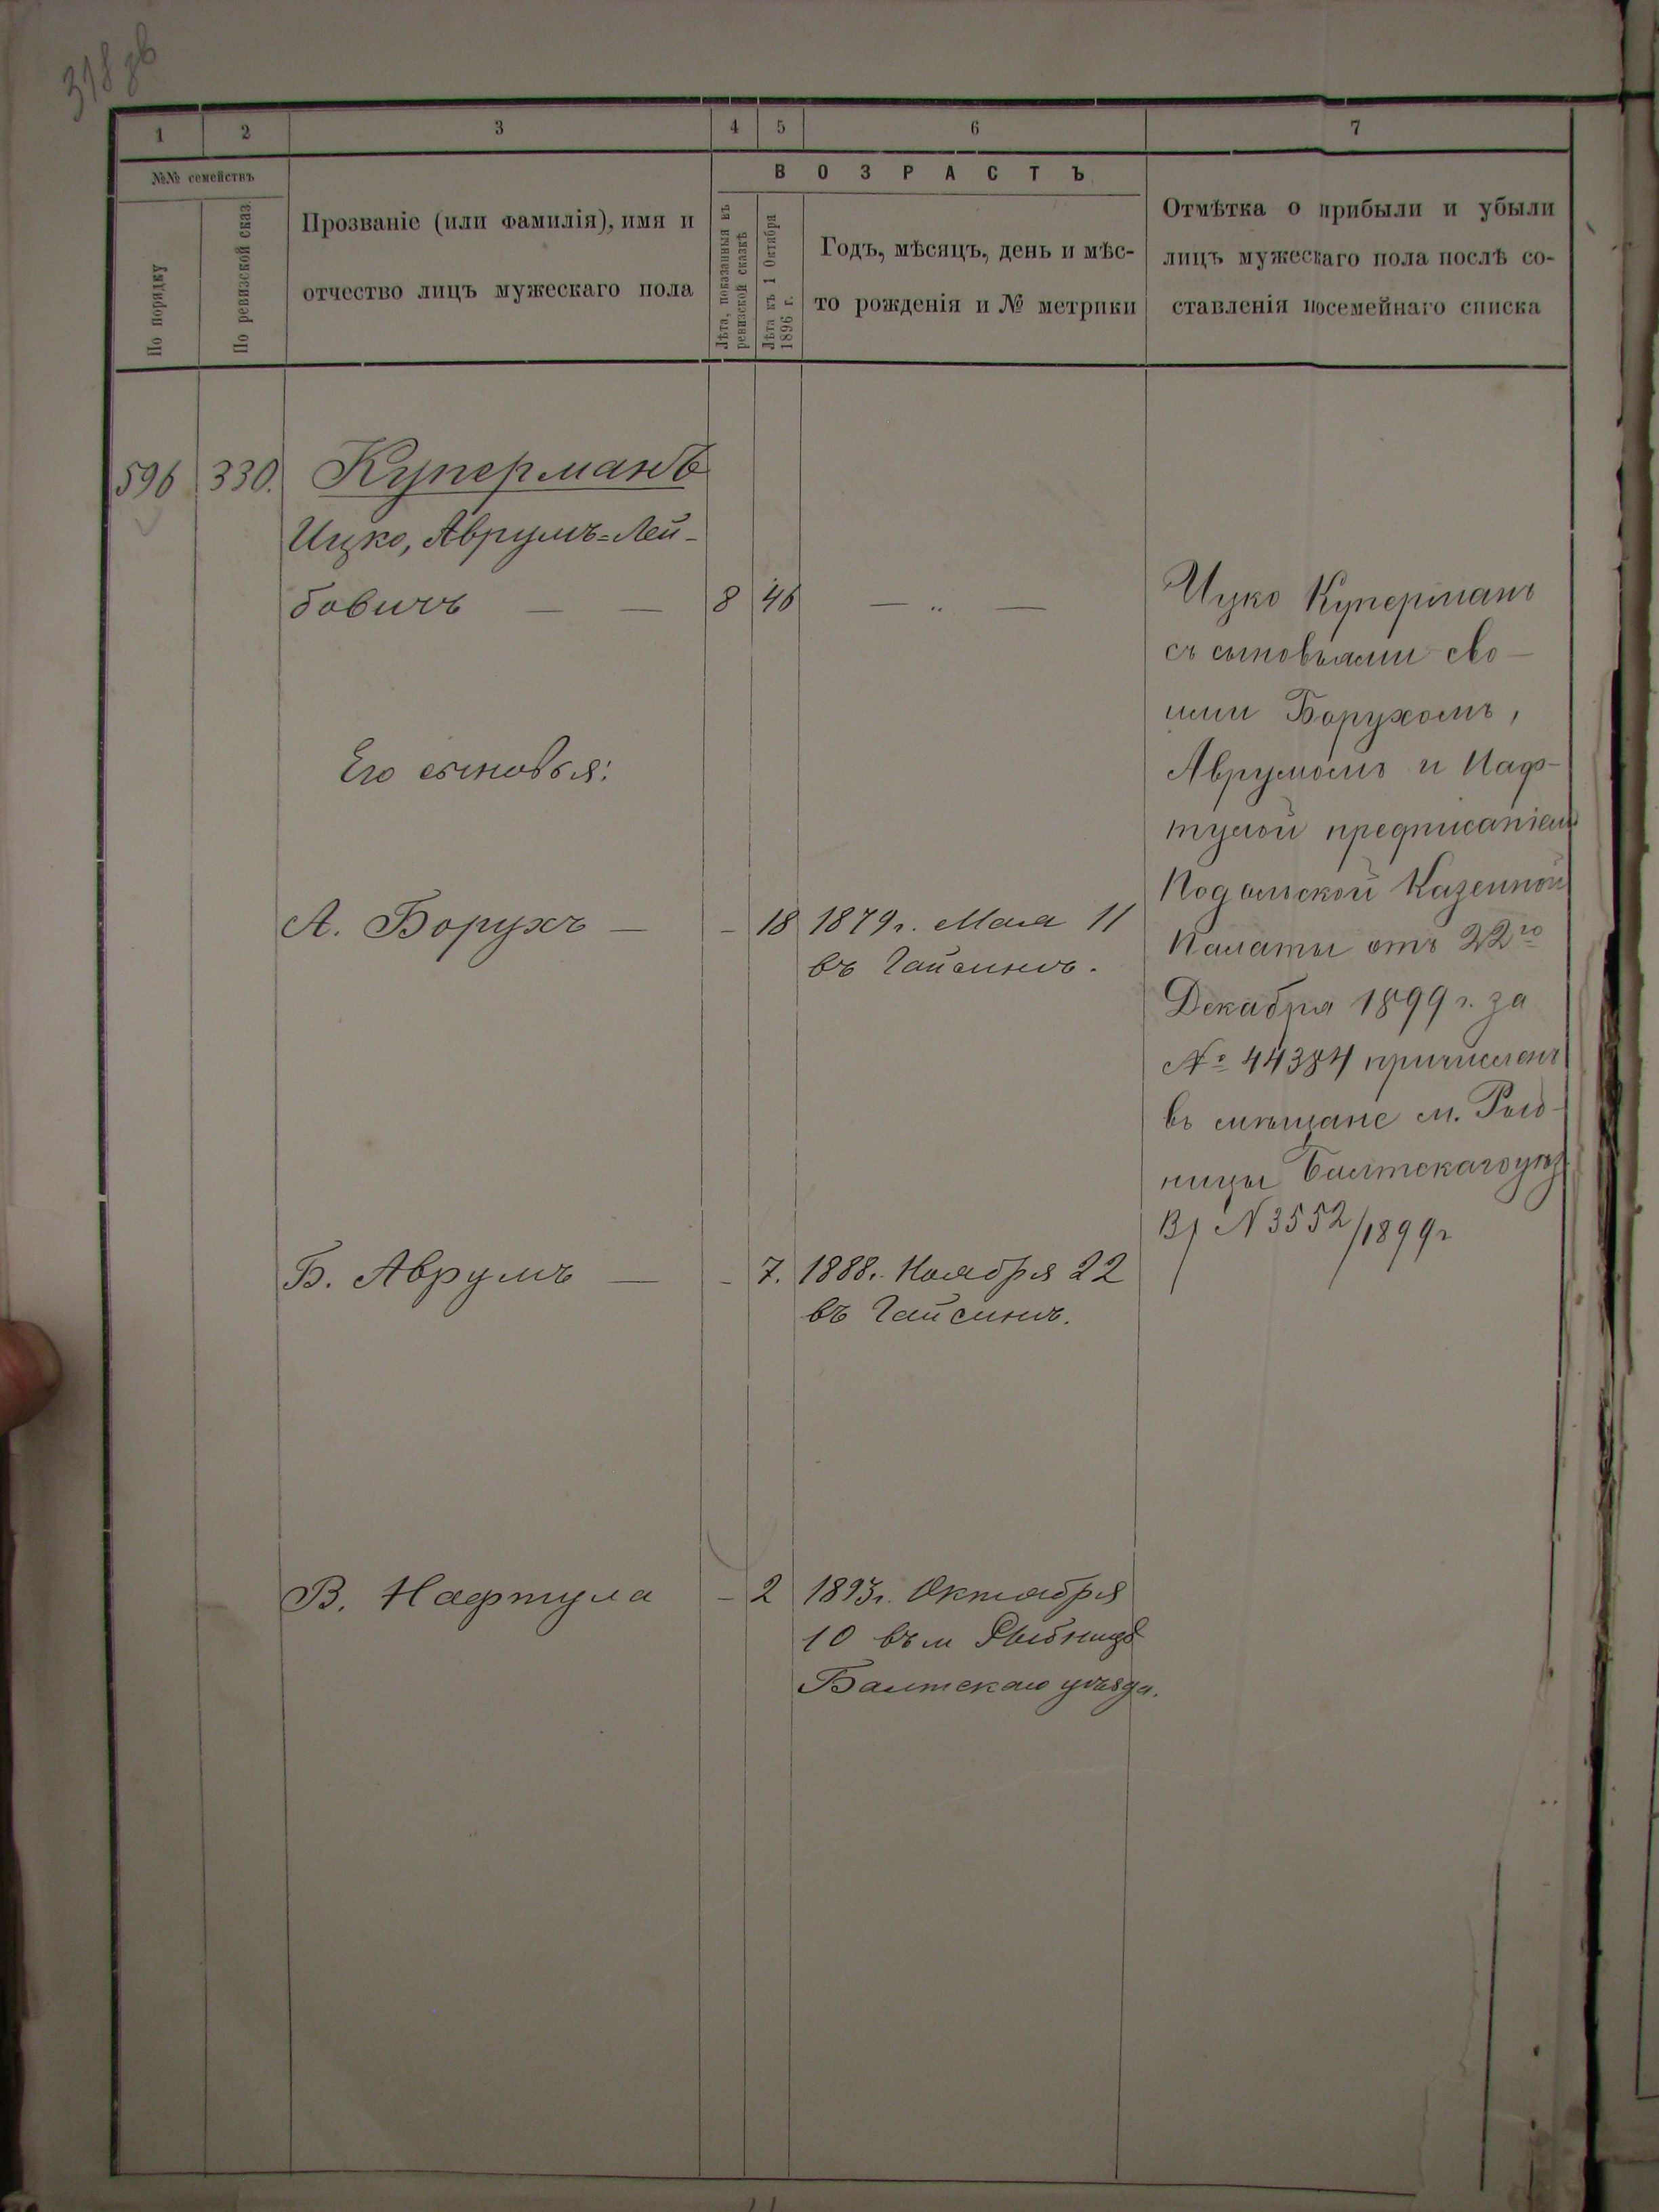 318 зв
1 2 3 4 5 6 7
№№ семействъ
По порядку
По ревизской сказ
Прозваніе (или фамилія), имя и
отчество лицъ мужескаго пола
ВОЗРАСТЪ
Лѣта, показанныя въ
ревизской сказкѣ
Лѣта къ 1 Октября
1896 г.
Годъ, мѣсяцъ, день и мѣс-
то рожденія и № метрики
Отмѣтка о прибыли и убыли
лицъ мужескаго пола послѣ со-
ставленія посемейнаго списка
596 330. Куперманъ
Ицко, Аврумъ=Лей-
бовичъ — — 8 46 — „ —
Его сыновья:
А. Борухъ — - 18 1879 г. Мая 11
въ Гайсинѣ.
Б. Аврумъ — - 7. 1888. Ноября 22
въ Гайсинѣ.
В. Нафтула - 2 1893 г. Октября
10 въ м Рыбницѣ
Балтскаго уѣзда.
Ицко Куперманъ
съ сыновьями сво-
ими Борухомъ,
Аврумомъ и Наф-
тулой предписаніемъ
Подольской Казенной
Палаты отъ 22го
Декабря 1899 г. за
№ 44384 причисленъ
въ мѣщане м. Рыб-
ницы Балтскаго уѣз.
В/ N 3552/1899 г